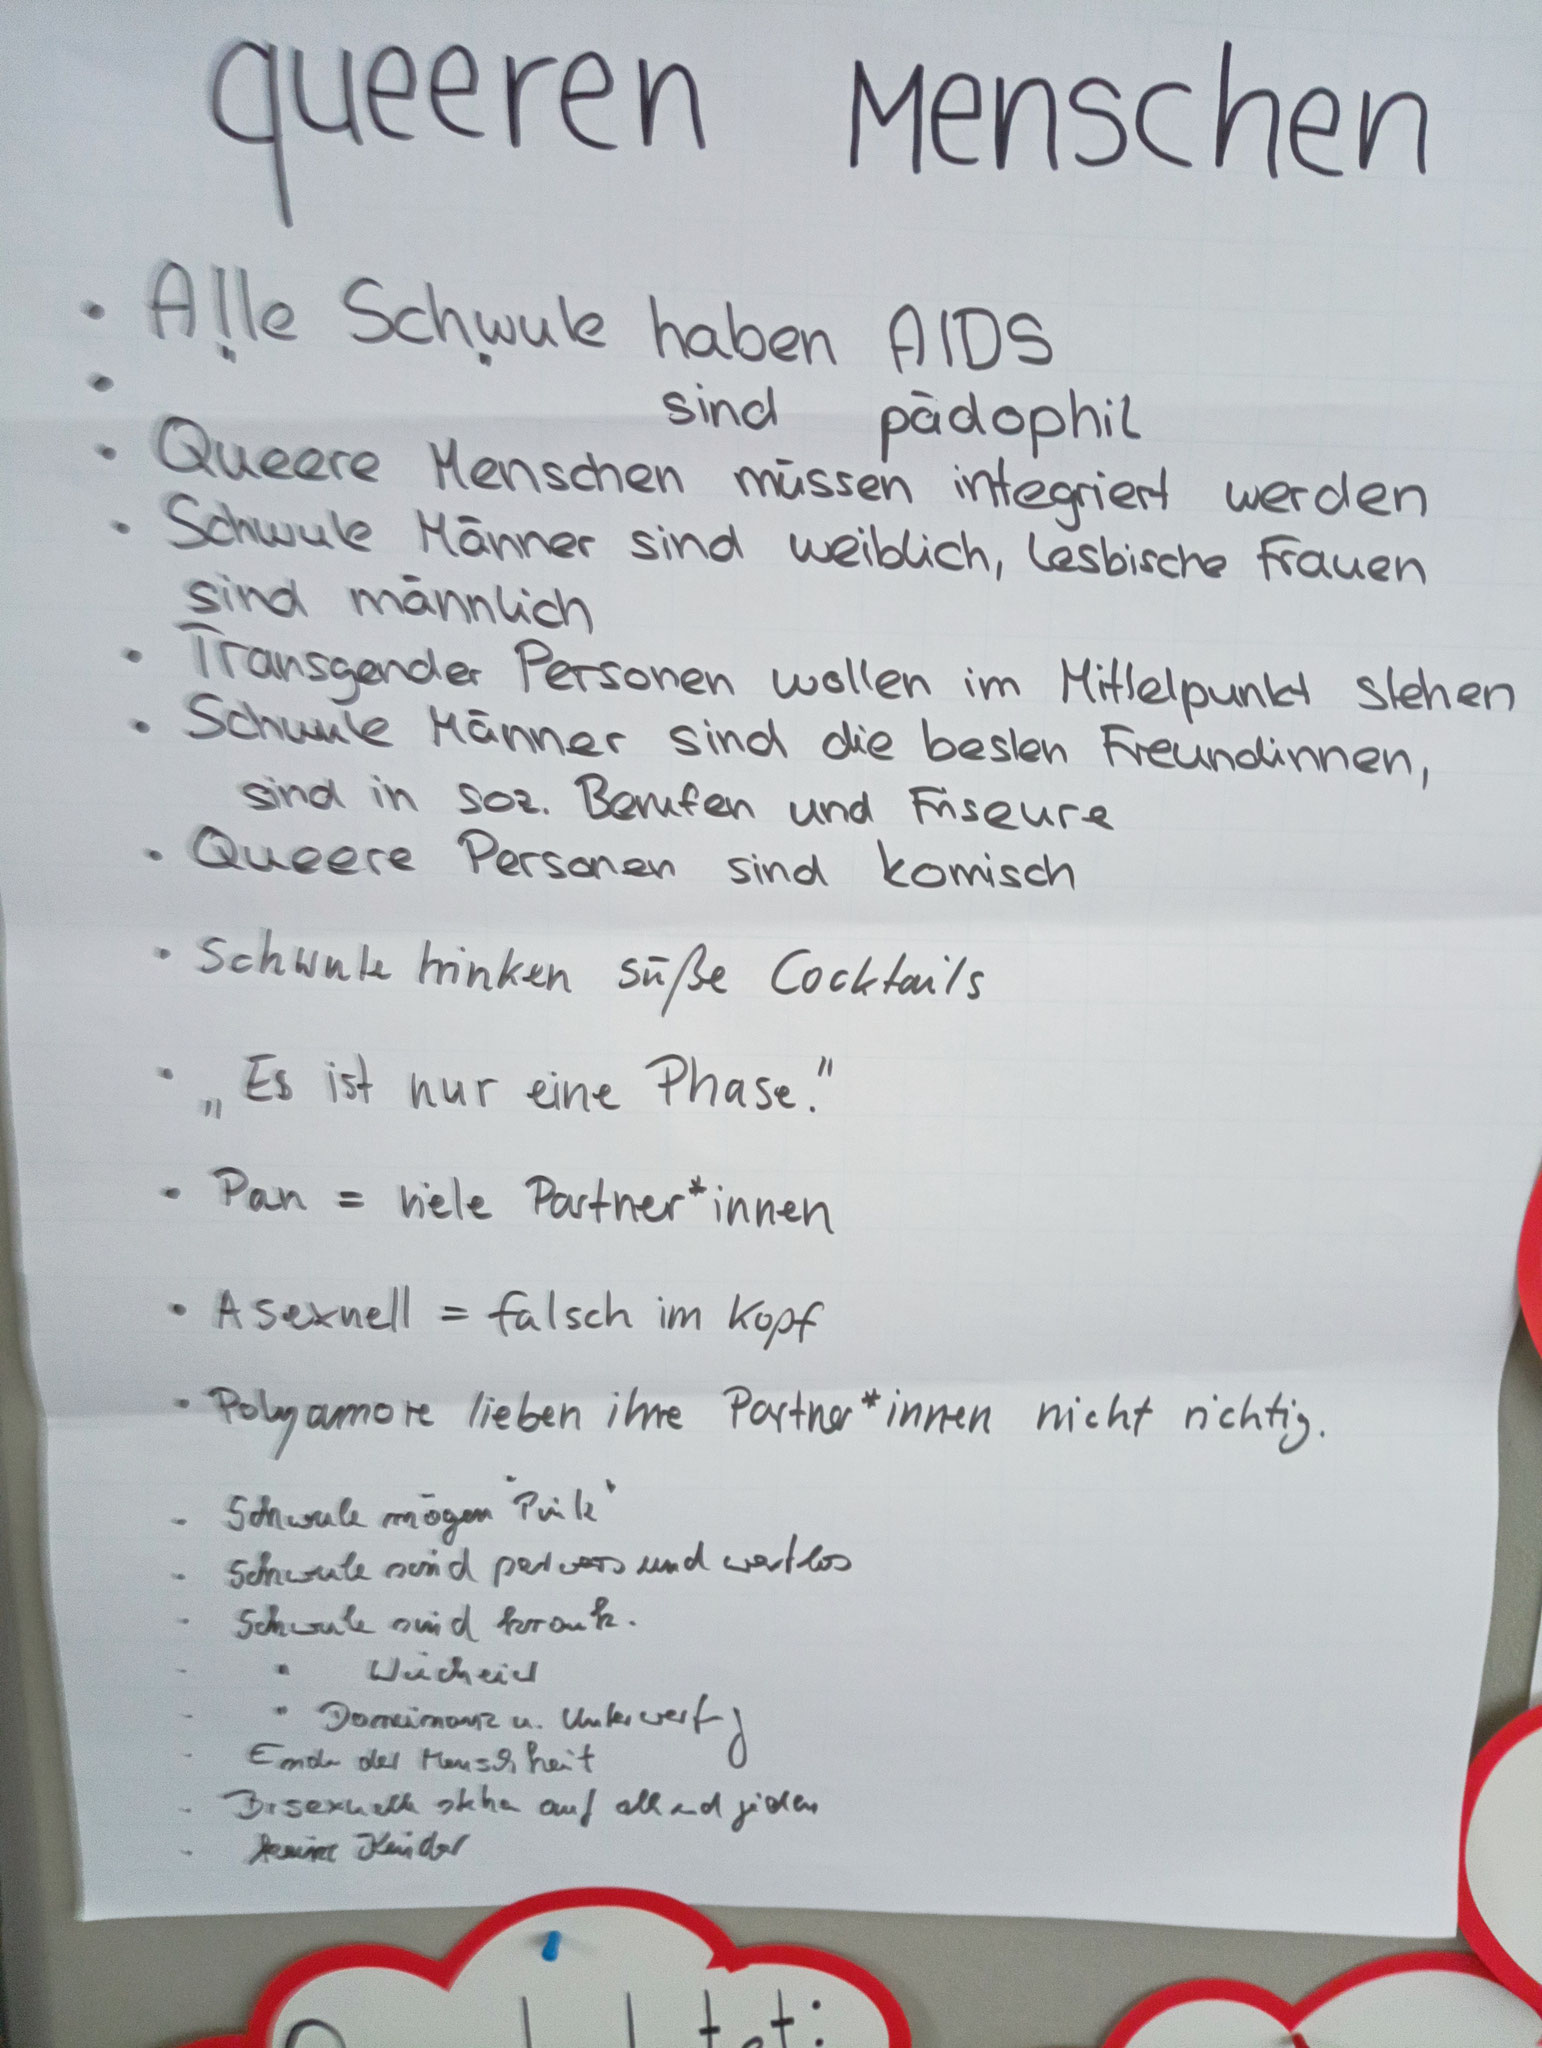 queeren Menschen
• Alle Schwule haben AIDS
• " " sind pädophil
• Queere Menschen müssen integriert werden
• Schwule Männer sind weiblich, lesbische Frauen
sind männlich
• Transgender Personen wollen im Mittelpunkt stehen
• Schwule Männer sind die besten Freundinnen,
sind in soz. Berufen und Friseure
• Queere Personen sind komisch
• Schwule trinken süße Cocktails
• „Es ist nur eine Phase."
• Pan = viele Partner*innen
• Asexuell = falsch im Kopf
• Polyamore lieben ihre Partner*innen nicht richtig.
- Schwule mögen "Pink"
- Schwule sind pervers und wertlos
- Schwule sind krank.
- " Weicheier
- " Dominanz u. Unterwerfg
- Ende der Menschheit
- Bisexuelle stehen auf all und jeden
- keine Kinder